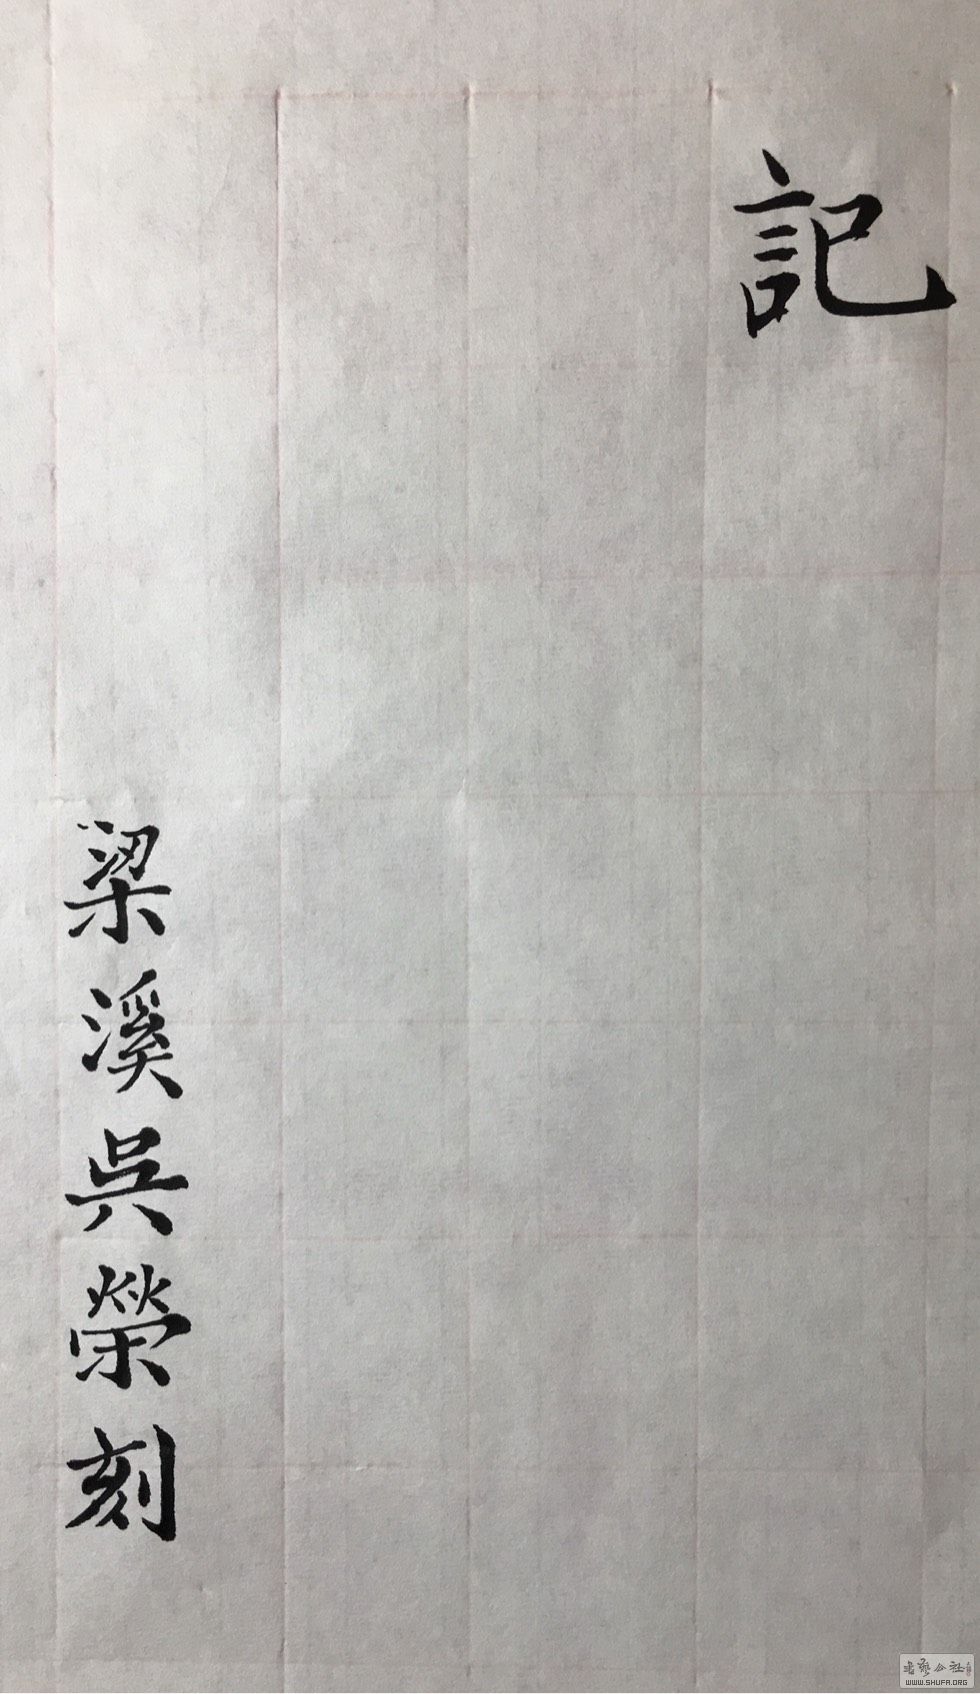 記
梁溪吳榮刻
书艺公社
WWW.SHUFA.ORG